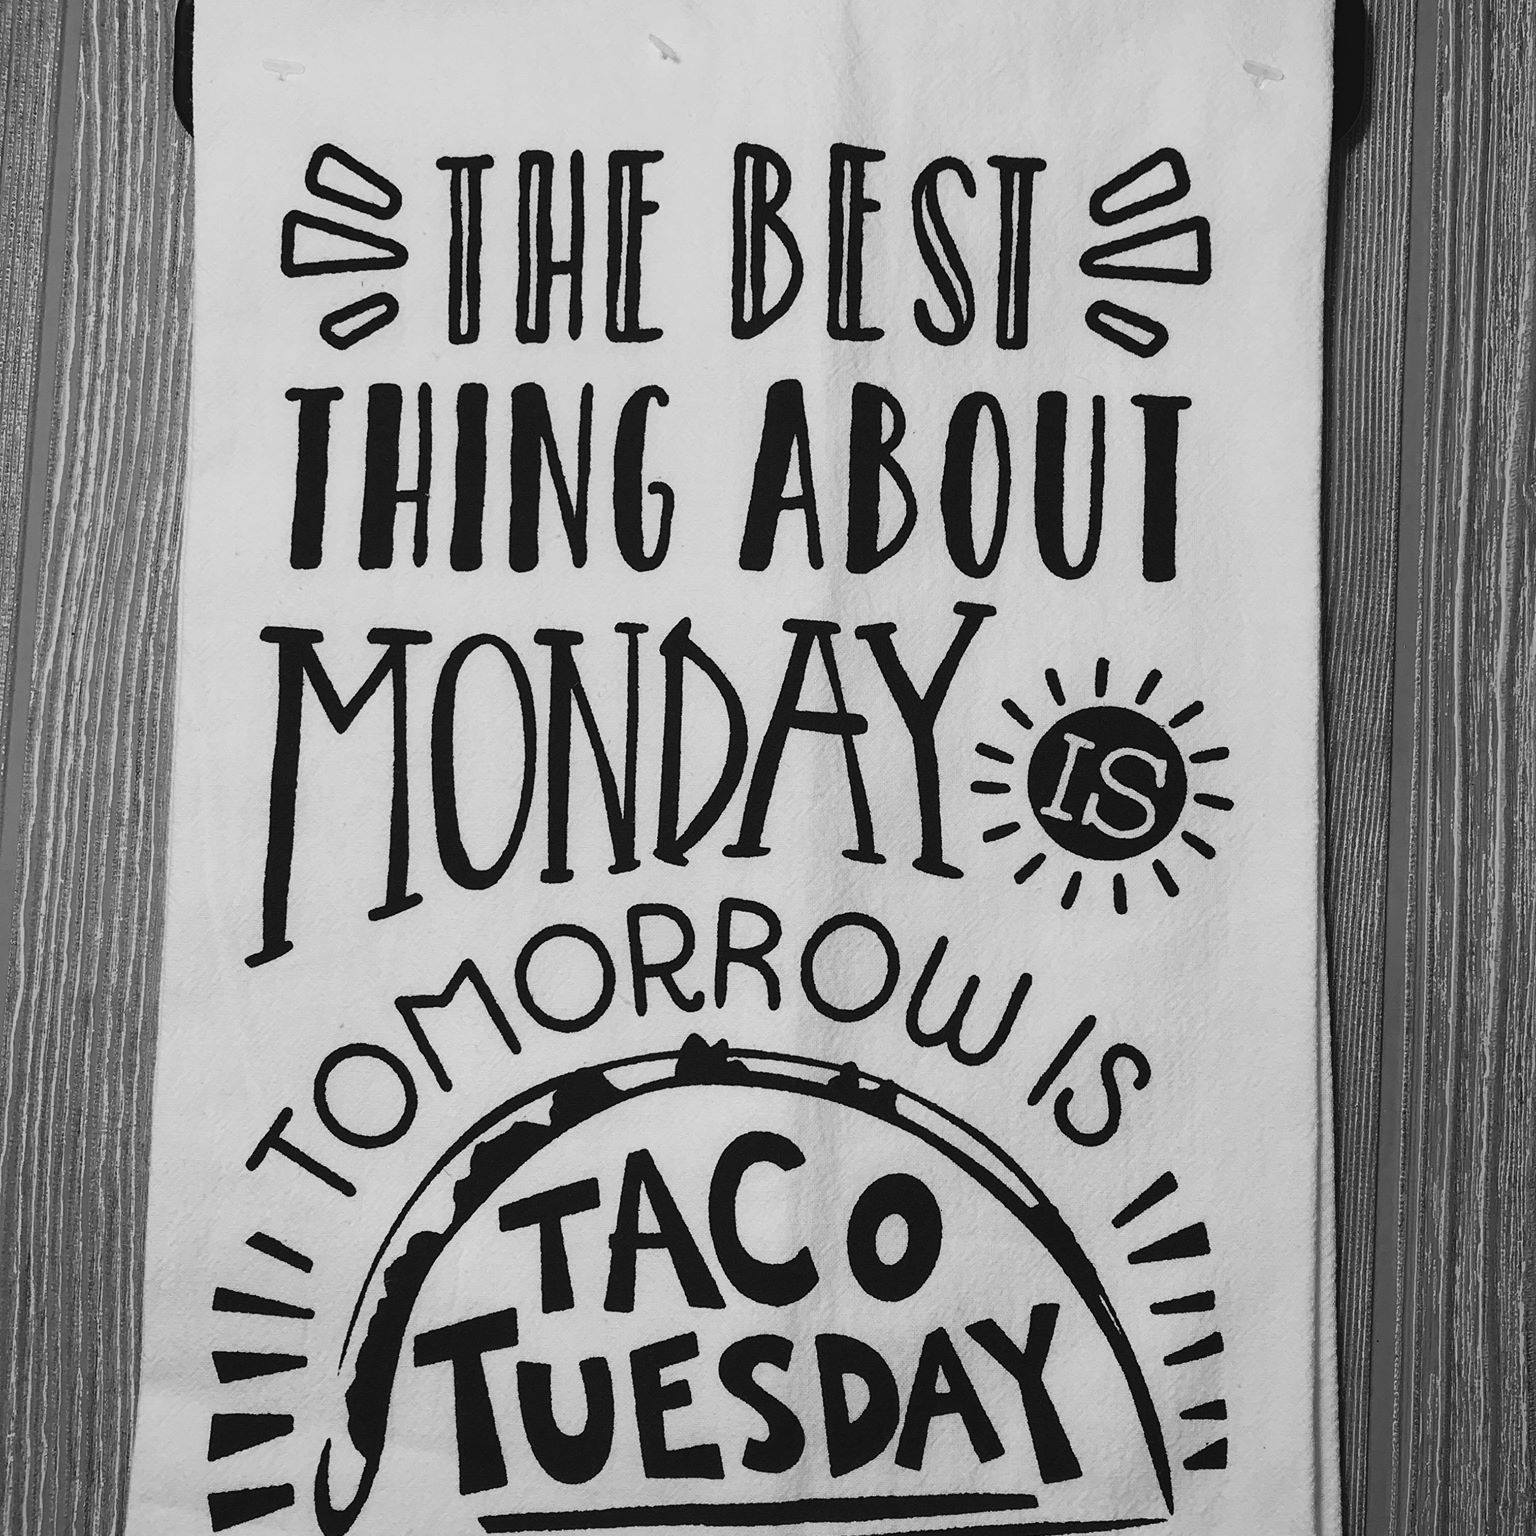 THE BEST
THING ABOUT
MONDAY IS
TOMORROW IS
TACO
TUESDAY